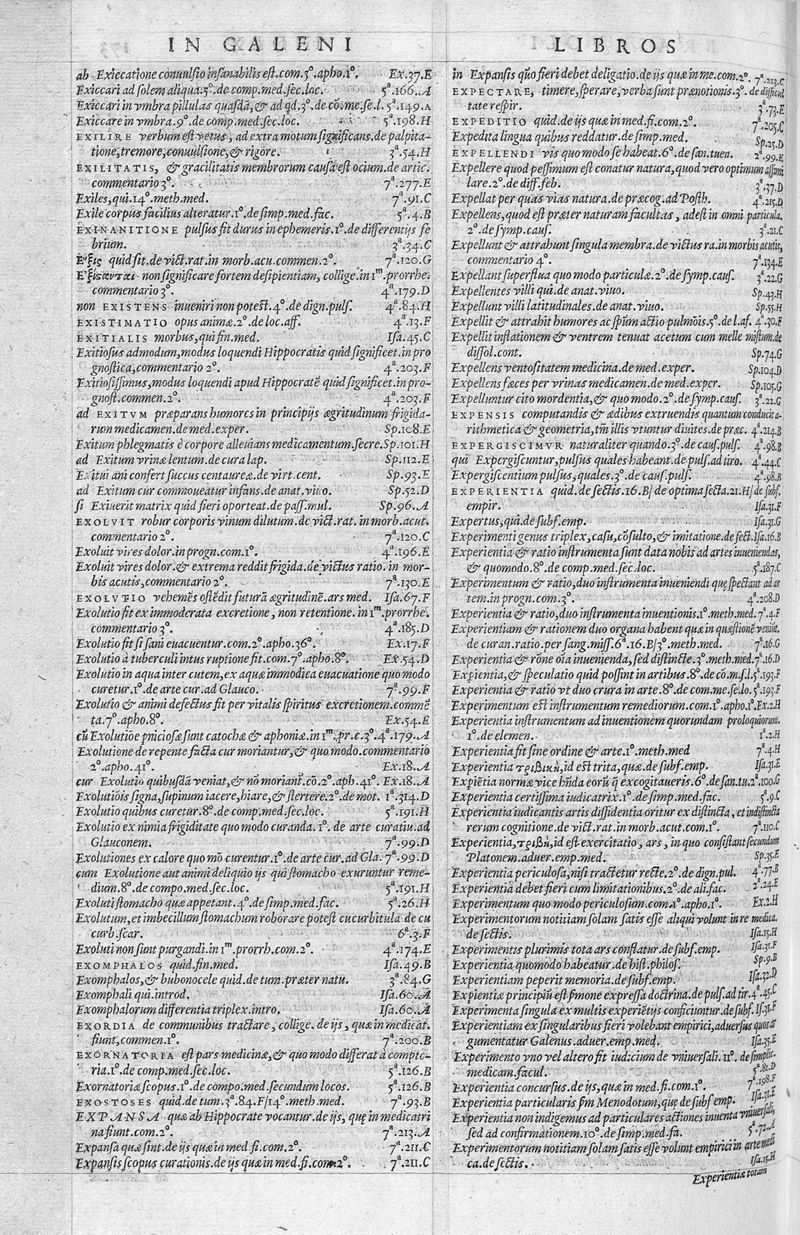 IN GALENI
ab Exiccatione conuulsio insanabilis est.com.5°.apho.1°. Ex.37.E
Exiccari ad solem aliqua.5°.de comp.med.sec.loc. 5ª.166.A
Exiccari in vmbra pillulas quasdã,& ad qd.3°.de cõ.me.se.l. 5ª.149.A
Exiccare in vmbra.9°.de comp.med.sec.loc. 5ª.198.H
EXILIRE verbum est vetus, ad extra motum significans.de palpita-
tione,tremore,conuulsione,& rigore. 3ª.54.H
EXILITATIS, & gracilitatis membrorum causa est ocium.de artic.
commentario 3°. 7ª.277.E
Exiles,qui.14°.meth.med. 7ª.91.C
Exile corpus facilius alteratur.1°.de simp.med.fac. 5ª.4.B
EXINANITIONE pulsus fit durus in ephemeris.1°.de differentijs fe
brium. 3ª.34.C
Ἕξις quid sit.de vict.rat.in morb.acu.commen.2°. 7ª.120.G
non significare fortem desipientiam, collige.in 1ᵐ.prorrhe.
commentario 3°. 4ª.179.D
non EXISTENS inueniri non potest.4°.de dign.puls. 4ª.84.H
EXISTIMATIO opus animæ.2°.de loc.aff. 4ª.13.F
EXITIALIS morbus,qui fin.med. Isa.45.C
Exitiosus admodum,modus loquendi Hippocratis quid significet.in pro
gnostica,commentario 2°. 4ª.203.F
Exitiosissimus,modus loquendi apud Hippocratẽ quid significet.in pro-
gnost.commen.2°. 4ª.203.F
ad EXITVM præparans humores in principijs ægritudinum frigida-
rum medicamen.de med.exper. Sp.108.E
Exitum phlegmatis è corpore alleuians medicamentum.secre. Sp.101.H
ad Exitum vrinæ lentum.de cura lap. Sp.112.E
Exitui ani confert succus centaureæ.de virt.cent. Sp.93.E
ad Exitum cur commoueatur infans.de anat.viuo. Sp.52.D
si Exiuerit matrix quid fieri oporteat.de pass.mul. Sp.96.A
EXOLVIT robur corporis vinum dilutum.de vict.rat.in morb.acut.
commentario 2°. 7ª.120.C
Exoluit vires dolor.in progn.com.1°. 4ª.196.E
Exoluit vires dolor.& extrema reddit frigida.de victus ratio.in mor-
bis acutis,commentario 2°. 7ª.130.E
EXOLVTIO vehemẽs ostẽdit futurã ægritudinẽ.ars med. Isa.67.F
Exolutio fit ex immoderata excretione, non retentione.in 1ᵐ.prorrhe.
commentario 3°. 4ª.185.D
Exolutio fit si sani euacuentur.com.2°.apho.36°. Ex.17.F
Exolutio à tuberculi intus ruptione fit.com.7°.apho.8°. Ex.54.D
Exolutio in aqua inter cutem,ex aquæ immodica euacuatione quo modo
curetur.1°.de arte cur.ad Glauco. 7ª.99.F
Exolutio & animi defectus fit per vitalis spiritus excretionem.commẽ
ta.7°.apho.8°. Ex.54.E
cũ Exolutiõe pniciosæ sunt catochæ & aphoniæ.in 1ᵐ.pr.c.3°. 4ª.179.A
Exolutione de repente facta cur moriantur,& quo modo.commentario
2°.apho.41°. Ex.18.A
cur Exolutio quibusdã veniat,& nõ moriant.cõ.2°.aph.41°. Ex.18.A
Exolutiõis signa,supinum iacere,hiare,& stertere.2°.de mot. 1ª.314.D
Exolutio quibus curetur.8°.de comp.med.sec.loc. 5ª.191.H
Exolutio ex nimia frigiditate quo modo curanda.1°.de arte curatiu.ad
Glauconem. 7ª.99.D
Exolutiones ex calore quo mõ curentur.1°.de arte cur.ad Gla. 7ª.99.D
cum Exolutione aut animi deliquio ijs qui stomacho exuruntur reme-
dium.8°.de compo.med.sec.loc. 5ª.191.H
Exoluti stomacho quæ appetant.4°.de simp.med.fac. 5ª.26.H
Exolutum,et imbecillum stomachum roborare potest cucurbitula.de cu
curb.scar. 6ª.3.F
Exoluti non sunt purgandi.in 1ᵐ.prorrh.com.2°. 4ª.174.E
EXOMPHALOS quid.fin.med. Isa.49.B
Exomphalos,& bubonocele quid.de tum.præter natu. 3ª.84.G
Exomphali qui.introd. Isa.60.A
Exomphalorum differentia triplex.intro. Isa.60.A
EXORDIA de communibus tractare, collige.de ijs, quæ in medicat.
fiunt,commen.1°. 7ª.200.B
EXORNATORIA est pars medicinæ,& quo modo differat à compto-
ria.1°.de comp.med.sec.loc. 5ª.126.B
Exornatoriæ scopus.1°.de compo.med.secundum locos. 5ª.126.B
EXOSTOSES quid.de tum.3ª.84.F/14°.meth.med. 7ª.93.B
EXPANSA quæ ab Hippocrate vocantur.de ijs, quę in medicatri
na fiunt.com.2°. 7ª.213.A
Expansa quæ sint.de ijs quæ in med.fi.com.2°. 7ª.211.C
Expansis scopus curationis.de ijs quæ in med.fi.com.2°. 7ª.211.C
LIBROS
in Expansis quõ fieri debet deligatio.de ijs quæ in me.com.2°. 7ª.213.C
EXPECTARE, timere,sperare,verba sunt prænotionis.3°.de difficul
tate respir. 3ª.73.E
EXPEDITIO quid.de ijs quæ in med.fi.com.2°. 7ª.203.C
Expedita lingua quibus reddatur.de simp.med. Sp.25.D
EXPELLENDI vis quo modo se habeat.6°.de san.tuen. 2ª.99.E
Expellere quod pessimum est conatur natura,quod vero optimum assimi
lare.2°.de diff.feb. 3ª.37.D
Expellat per quas vias natura.de præcog.ad Posth. 4ª.215.D
Expellens,quod est præter naturam facultas, adest in omni particula.
2°.de symp.caus. 3ª.21.C
Expellunt & attrahunt singula membra.de victus ra.in morbis acutis,
commentario 4°. 7ª.134.E
Expellant superflua quo modo particulæ.2°.de symp.caus. 3ª.22.G
Expellentes villi qui.de anat.viuo. Sp.43.H
Expellunt villi latitudinales.de anat.viuo. Sp.55.H
Expellit & attrahit humores ac spũm actio pulmõis.5°.de l.af. 4ª.30.F
Expellit inflationem & ventrem tenuat acetum cum melle mistum.de
dissol.cont. Sp.74.G
Expellens ventositatem medicina.de med.exper. Sp.104.D
Expellens fæces per vrinas medicamen.de med.exper. Sp.105.G
Expelluntur cito mordentia,& quo modo.2°.de symp.caus. 3ª.21.G
EXPENSIS computandis & ædibus extruendis quantum conducit a-
rithmetica & geometria,tñ illis vtuntur diuites.de præc. 4ª.214.B
EXPERGISCIMVR naturaliter quando.3°.de caus.puls. 4ª.98.B
qui Expergiscuntur,pulsus quales habeant.de puls.ad tiro. 4ª.44.C
Expergiscentium pulsus,quales.3°.de caus.puls. 4ª.98.B
EXPERIENTIA quid.de sectis.16.B/de optima secta.21.H/de subf.
empir. Isa.31.F
Expertus,qui.de subf.emp. Isa.31.G
Experimenti genus triplex,casu,cõsulto,& imitatione.de sect. Isa.16.B
Experientia & ratio instrumenta sunt data nobis ad artes inueniendas,
& quomodo.8°.de comp.med.sec.loc. 5ª.187.C
Experimentum & ratio,duo instrumenta inueniendi quę spectant ad ar
tem.in progn.com.3°. 4ª.208.D
Experientia & ratio,duo instrumenta inuentionis.1°.meth.med. 7ª.4.F
Experientiam & rationem duo organa habent quæ in quæstionẽ veniũt.
de curan.ratio.per sang.miss.6ª.16.B/3°.meth.med. 7ª.16.G
Experientia & rõne oĩa inuenienda,sed distincte.3°.meth.med. 7ª.16.D
Expientia,& speculatio quid possint in artibus.8°.de cõ.m.s.l. 5ª.193.F
Experientia & ratio vt duo crura in arte.8°.de com.me.se.lo. 5ª.193.F
Experimentum est instrumentum remediorum.com.1°.apho.1°. Ex.2.H
Experientia instrumentum ad inuentionem quorundam proloquiorum.
1°.de elemen. 1ª.2.H
Experientia fit sine ordine & arte.1°.meth.med 7ª.4.H
Experientia τριβικὴ,id est trita,quæ.de subf.emp. Isa.31.E
Expiẽtia normæ vice hñda eorũ q̃ excogitaueris.6°.de san.tu. 2ª.100.G
Experientia certissima iudicatrix.1°.de simp.med.fac. 5ª.9.C
Experientia iudicantis artis dissidentia oritur ex distincta, et indistincta
rerum cognitione.de vict.rat.in morb.acut.com.1°. 7ª.110.C
Experientia,τριβὴ,id est exercitatio, ars, in quo consistant secundum
Platonem.aduer.emp.med. Sp.35.E
Experientia periculosa,nisi tractetur recte.2°.de dign.pul. 4ª.77.E
Experientia debet fieri cum limitationibus.2°.de ali.fac. 2ª.24.E
Experimentum quo modo periculosum.com.1°.apho.1°. Ex.2.H
Experimentorum notitiam solam satis esse aliqui volunt in re medica.
de sectis. Isa.15.H
Experimentis plurimis tota ars constatur.de subf.emp. Isa.31.F
Experientia quomodo habeatur.de hist.philos. Sp.9.B
Experientiam peperit memoria.de subf.emp. Isa.32.D
Expientiæ principiũ est pmone expressa doctrina.de puls.ad tir. 4ª.45.C
Experimenta singula ex multis experiẽtijs conficiuntur.de subf. Isa.31.F
Experientiam ex singularibus fieri volebant empirici,aduersus quos ar
gumentatur Galenus.aduer.emp.med. Isa.35.E
Experimento vno vel altero fit iudicium de vniuersali.11°.de simplic.
medicam.facul. 5ª.81.D
Experientia concursus.de ijs,quæ in med.fi.com.1°. 7ª.198.F
Experientia particularis fm Menodotum,quę.de subf.emp. Isa.31.E
Experientia non indigemus ad particulares actiones inuenta vniuersali,
sed ad confirmationem.10°.de simp.med.fa. 5ª.72.A
Experimentorum notitiam solam satis esse volunt empirici in arte medi
ca.de sectis. Isa.15.H
Experientiæ totam